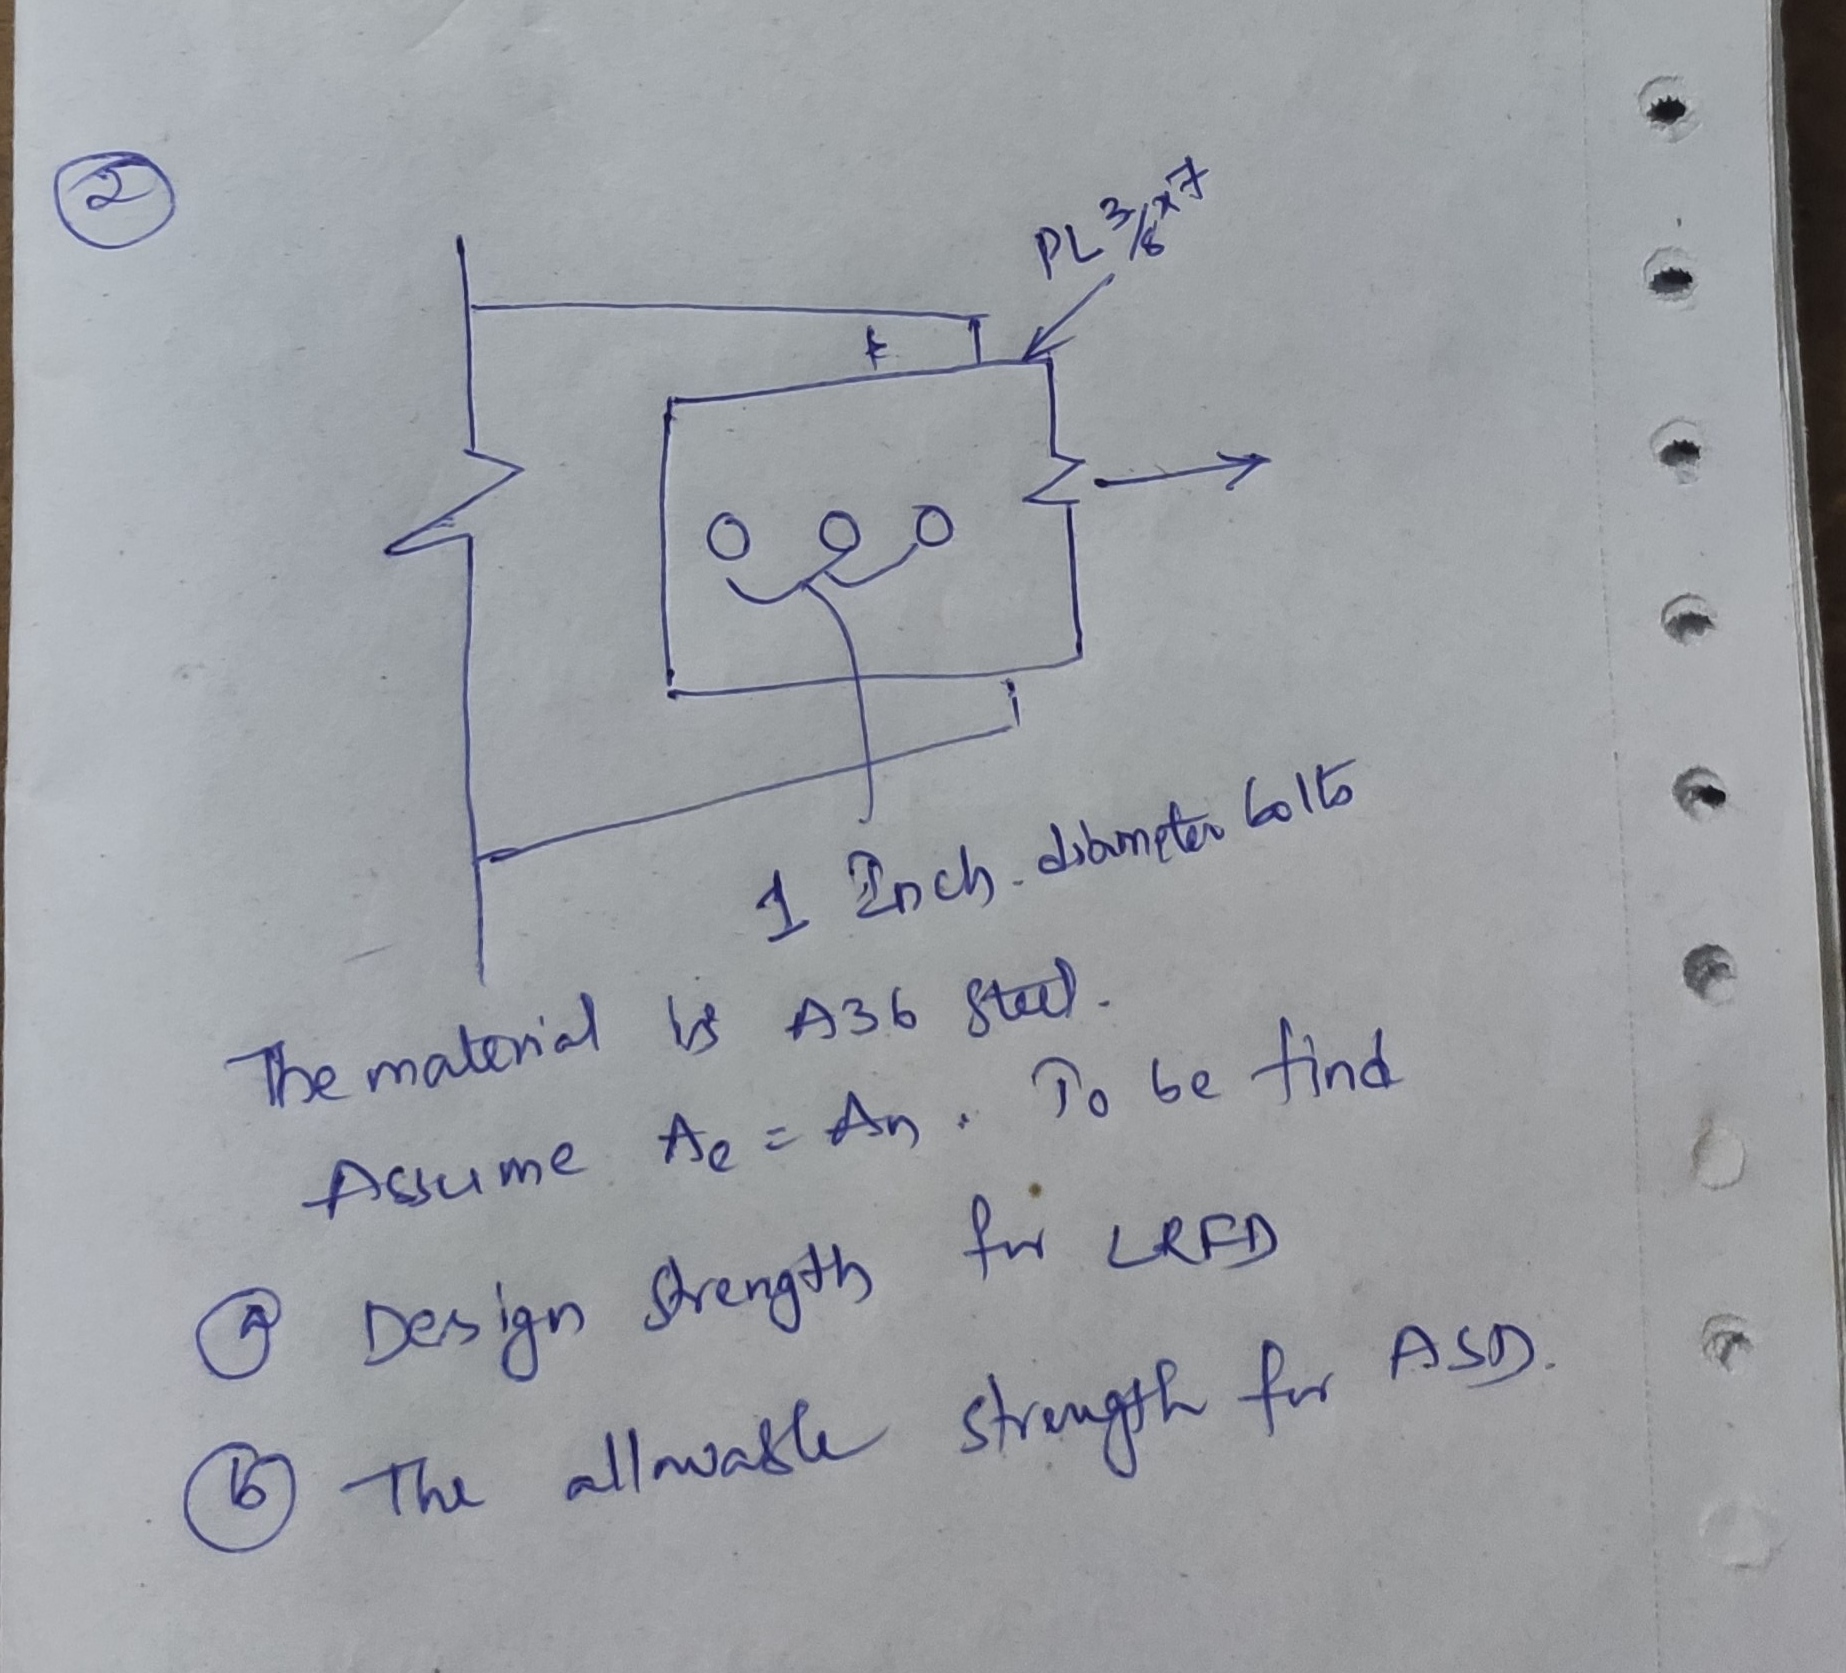 2
PL 3/8 x 7
t
1 Inch. diameter bolts
The material is A36 steel.
Assume Ae = An. To be find
a Design strength for LRFD
b The allowable strength for ASD.